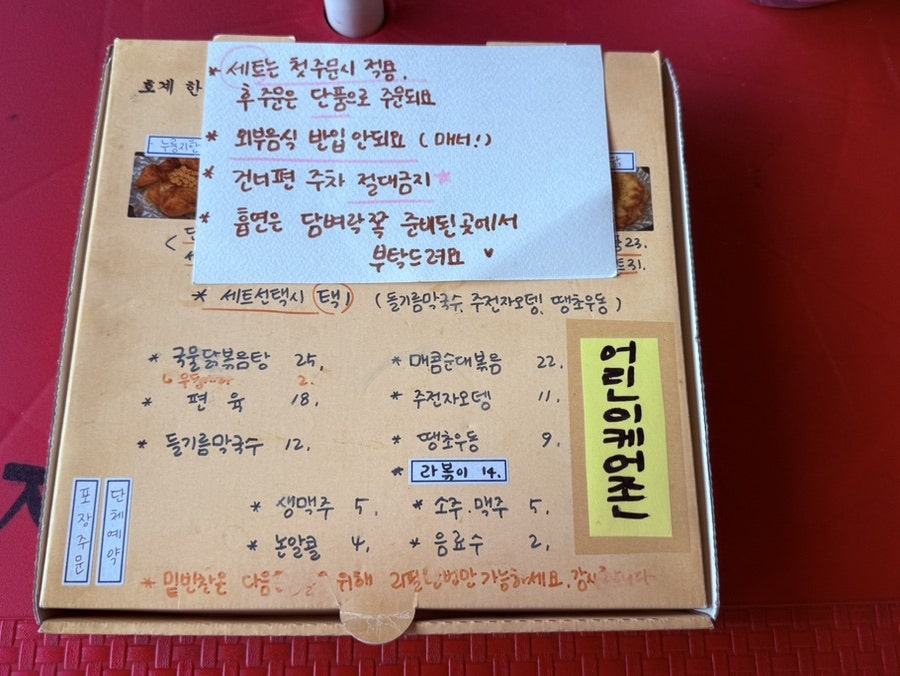 호계 한
* 세트는 첫주문시 적용.
후 주문은 단품으로 주문되요
* 외부음식 반입 안되요 (매너!)
* 건너편 주차 절대금지
* 흡연은 담벼락쪽 준비된곳에서
부탁드려요
누룽지한
23.
트 31.
* 세트선택시 택1 (들기름막국수, 주전자오뎅, 땡초우동)
* 국물닭볶음탕 25,
2.
* 편육 18.
* 들기름막국수 12.
* 매콤순대볶음 22.
* 주전자오뎅 11.
* 땡초우동 9.
* 라볶이 14.
* 생맥주 5.
* 소주.맥주 5.
* 논알콜 4.
* 음료수 2.
어린이케어존
포장주문
단체예약
* 밑반찬은 다음 위해 리필 한번만 가능하세요.